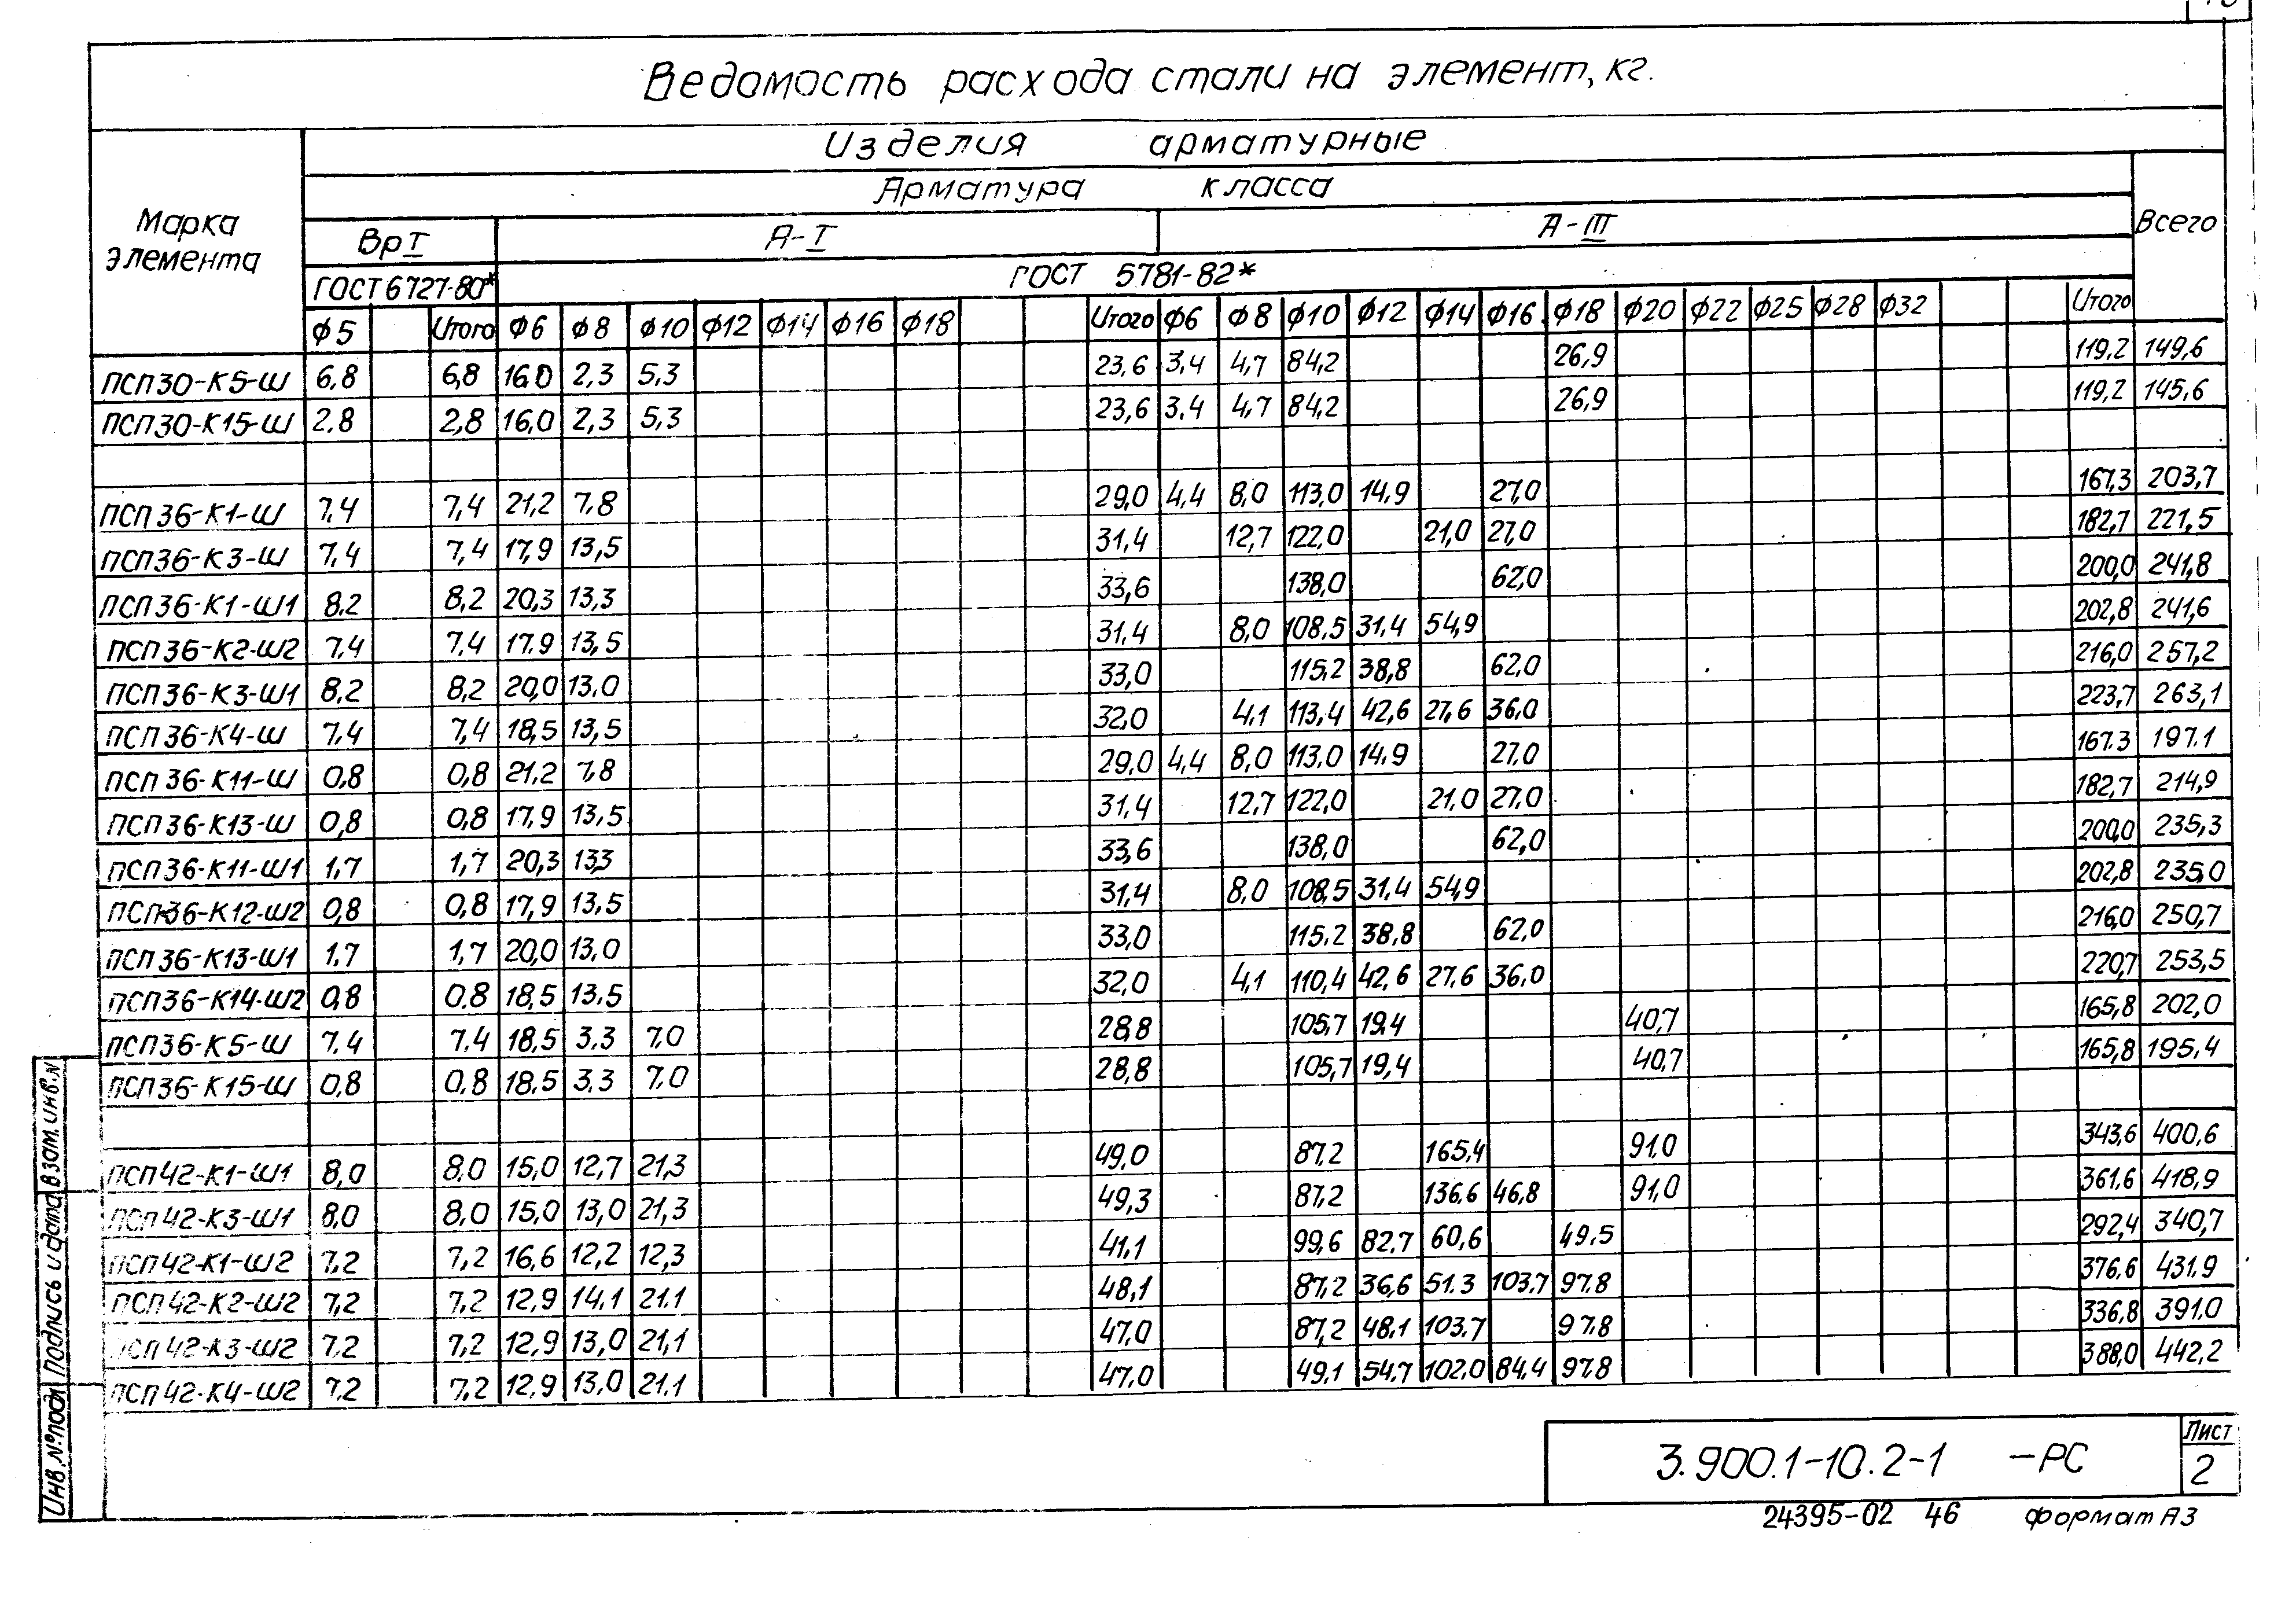 Ведомость расхода стали на элемент, кг.
Изделия арматурные
Арматура класса
Марка элемента
Вр I
А-I
А-III
Всего
ГОСТ 6727-80*
ГОСТ 5781-82*
Ф5 Итого Ф6 Ф8 Ф10 Ф12 Ф14 Ф16 Ф18 Итого Ф6 Ф8 Ф10 Ф12 Ф14 Ф16 Ф18 Ф20 Ф22 Ф25 Ф28 Ф32 Итого
ПСП30-К5-Ш 6,8 6,8 16,0 2,3 5,3 23,6 3,4 4,7 84,2 26,9 119,2 149,6
ПСП30-К15-Ш 2,8 2,8 16,0 2,3 5,3 23,6 3,4 4,7 84,2 26,9 119,2 145,6
ПСП36-К1-Ш 7,4 7,4 21,2 7,8 29,0 4,4 8,0 113,0 14,9 27,0 167,3 203,7
ПСП36-К3-Ш 7,4 7,4 17,9 13,5 31,4 12,7 122,0 21,0 27,0 182,7 221,5
ПСП36-К1-Ш1 8,2 8,2 20,3 13,3 33,6 138,0 62,0 200,0 241,8
ПСП36-К2-Ш2 7,4 7,4 17,9 13,5 31,4 8,0 108,5 31,4 54,9 202,8 241,6
ПСП36-К3-Ш1 8,2 8,2 20,0 13,0 33,0 115,2 38,8 62,0 216,0 257,2
ПСП36-К4-Ш 7,4 7,4 18,5 13,5 32,0 4,1 113,4 42,6 27,6 36,0 223,7 263,1
ПСП36-К11-Ш 0,8 0,8 21,2 7,8 29,0 4,4 8,0 113,0 14,9 27,0 167.3 197.1
ПСП36-К13-Ш 0,8 0,8 17,9 13,5 31,4 12,7 122,0 21,0 27,0 182,7 214,9
ПСП36-К11-Ш1 1,7 1,7 20,3 13,3 33,6 138,0 62,0 200,0 235,3
ПСП-36-К12-Ш2 0,8 0,8 17,9 13,5 31,4 8,0 108,5 31,4 54,9 202,8 235,0
ПСП36-К13-Ш1 1.7 1,7 20,0 13,0 33,0 115,2 38,8 62,0 216,0 250,7
ПСП36-К14-Ш2 0,8 0,8 18,5 13,5 32,0 4,1 110,4 42,6 27,6 36,0 220,7 253,5
ПСП36-К5-Ш 7.4 7,4 18,5 3.3 7,0 28,8 105,7 19,4 40,7 165,8 202,0
ПСП36-К15-Ш 0,8 0,8 18,5 3.3 7,0 28,8 105,7 19,4 40,7 165,8 195,4
ПСП42-К1-Ш1 8,0 8,0 15,0 12,7 21,3 49,0 87,2 165,4 91,0 343,6 400,6
ПСП42-К3-Ш1 8,0 8,0 15,0 13,0 21,3 49,3 87,2 136,6 46,8 91,0 361,6 418,9
ПСП42-К1-Ш2 7,2 7,2 16,6 12,2 12,3 41,1 99,6 82,7 60,6 49,5 292,4 340,7
ПСП42-К2-Ш2 7,2 7,2 12,9 14,1 21.1 48,1 87,2 36,6 51.3 103,7 97.8 376,6 431.9
ПСП42-К3-Ш2 7,2 7,2 12,9 13,0 21,1 47,0 87,2 48,1 103,7 97.8 336,8 391.0
ПСП42-К4-Ш2 7,2 7,2 12,9 13,0 21.1 47,0 49,1 54,7 102,0 84,4 97.8 388,0 442,2
Инв. №подл Подпись и дата Взам. инв. N
3.900.1-10.2-1 -РС
Лист
2
24395-02 46 Формат А3